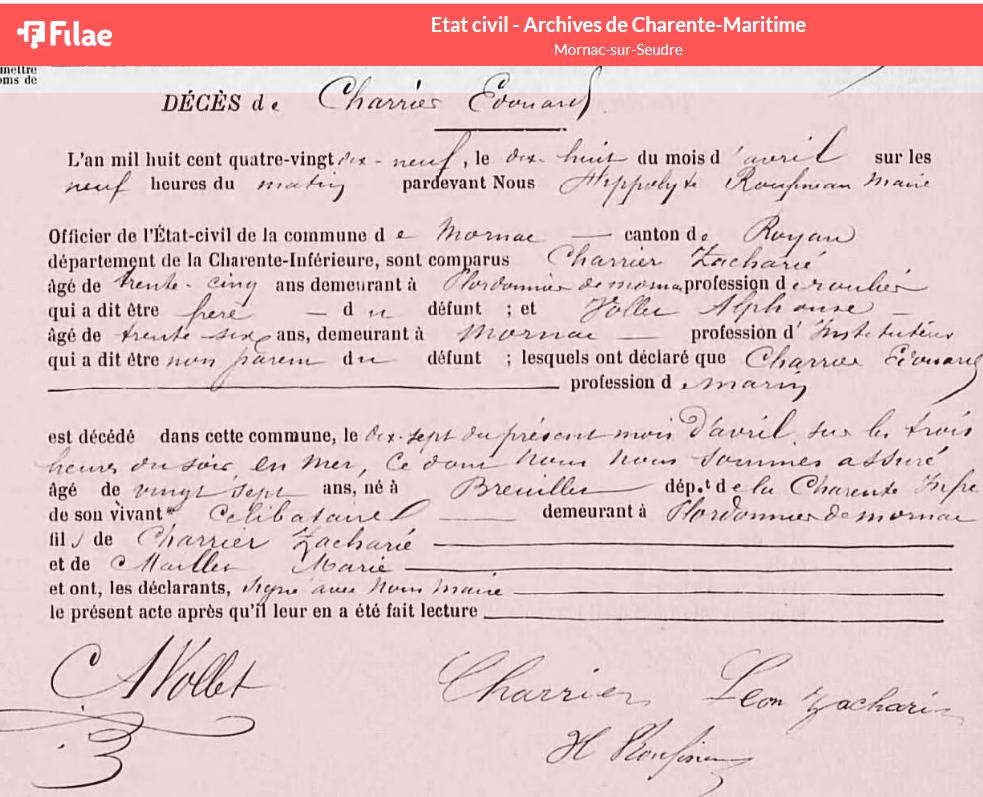 Filae
Etat civil - Archives de Charente-Maritime
Mornac-sur-Seudre
mettre
oms de
DÉCÈS de Charrier Edouard
L'an mil huit cent quatre-vingt dix-neuf, le dix-huit du mois d'avril sur les
neuf heures du matin pardevant Nous Hippolyte Maire
Officier de l'État-civil de la commune de Mornac canton de Royan
département de la Charente-Inférieure, sont comparus Charrier Zacharie
âgé de trente-cinq ans demeurant à de mornac profession de roulier
qui a dit être frère du défunt ; et Vollet Alphonse
âgé de trente six ans, demeurant à Mornac profession d'Instituteur
qui a dit être non parent du défunt ; lesquels ont déclaré que Charrier Edouard
profession de marin
est décédé dans cette commune, le dix-sept du présent mois d'avril, sur les trois
heures du soir, en mer, ce dont nous nous sommes assuré
âgé de vingt sept ans, né à Breuillet dép.t de la Charente Infre
de son vivant celibataire demeurant à de mornac
fils de Charrier Zacharie
et de Marie
et ont, les déclarants, signé avec nous maire
le présent acte après qu'il leur en a été fait lecture
A Vollet
Charrier Leon Zacharie